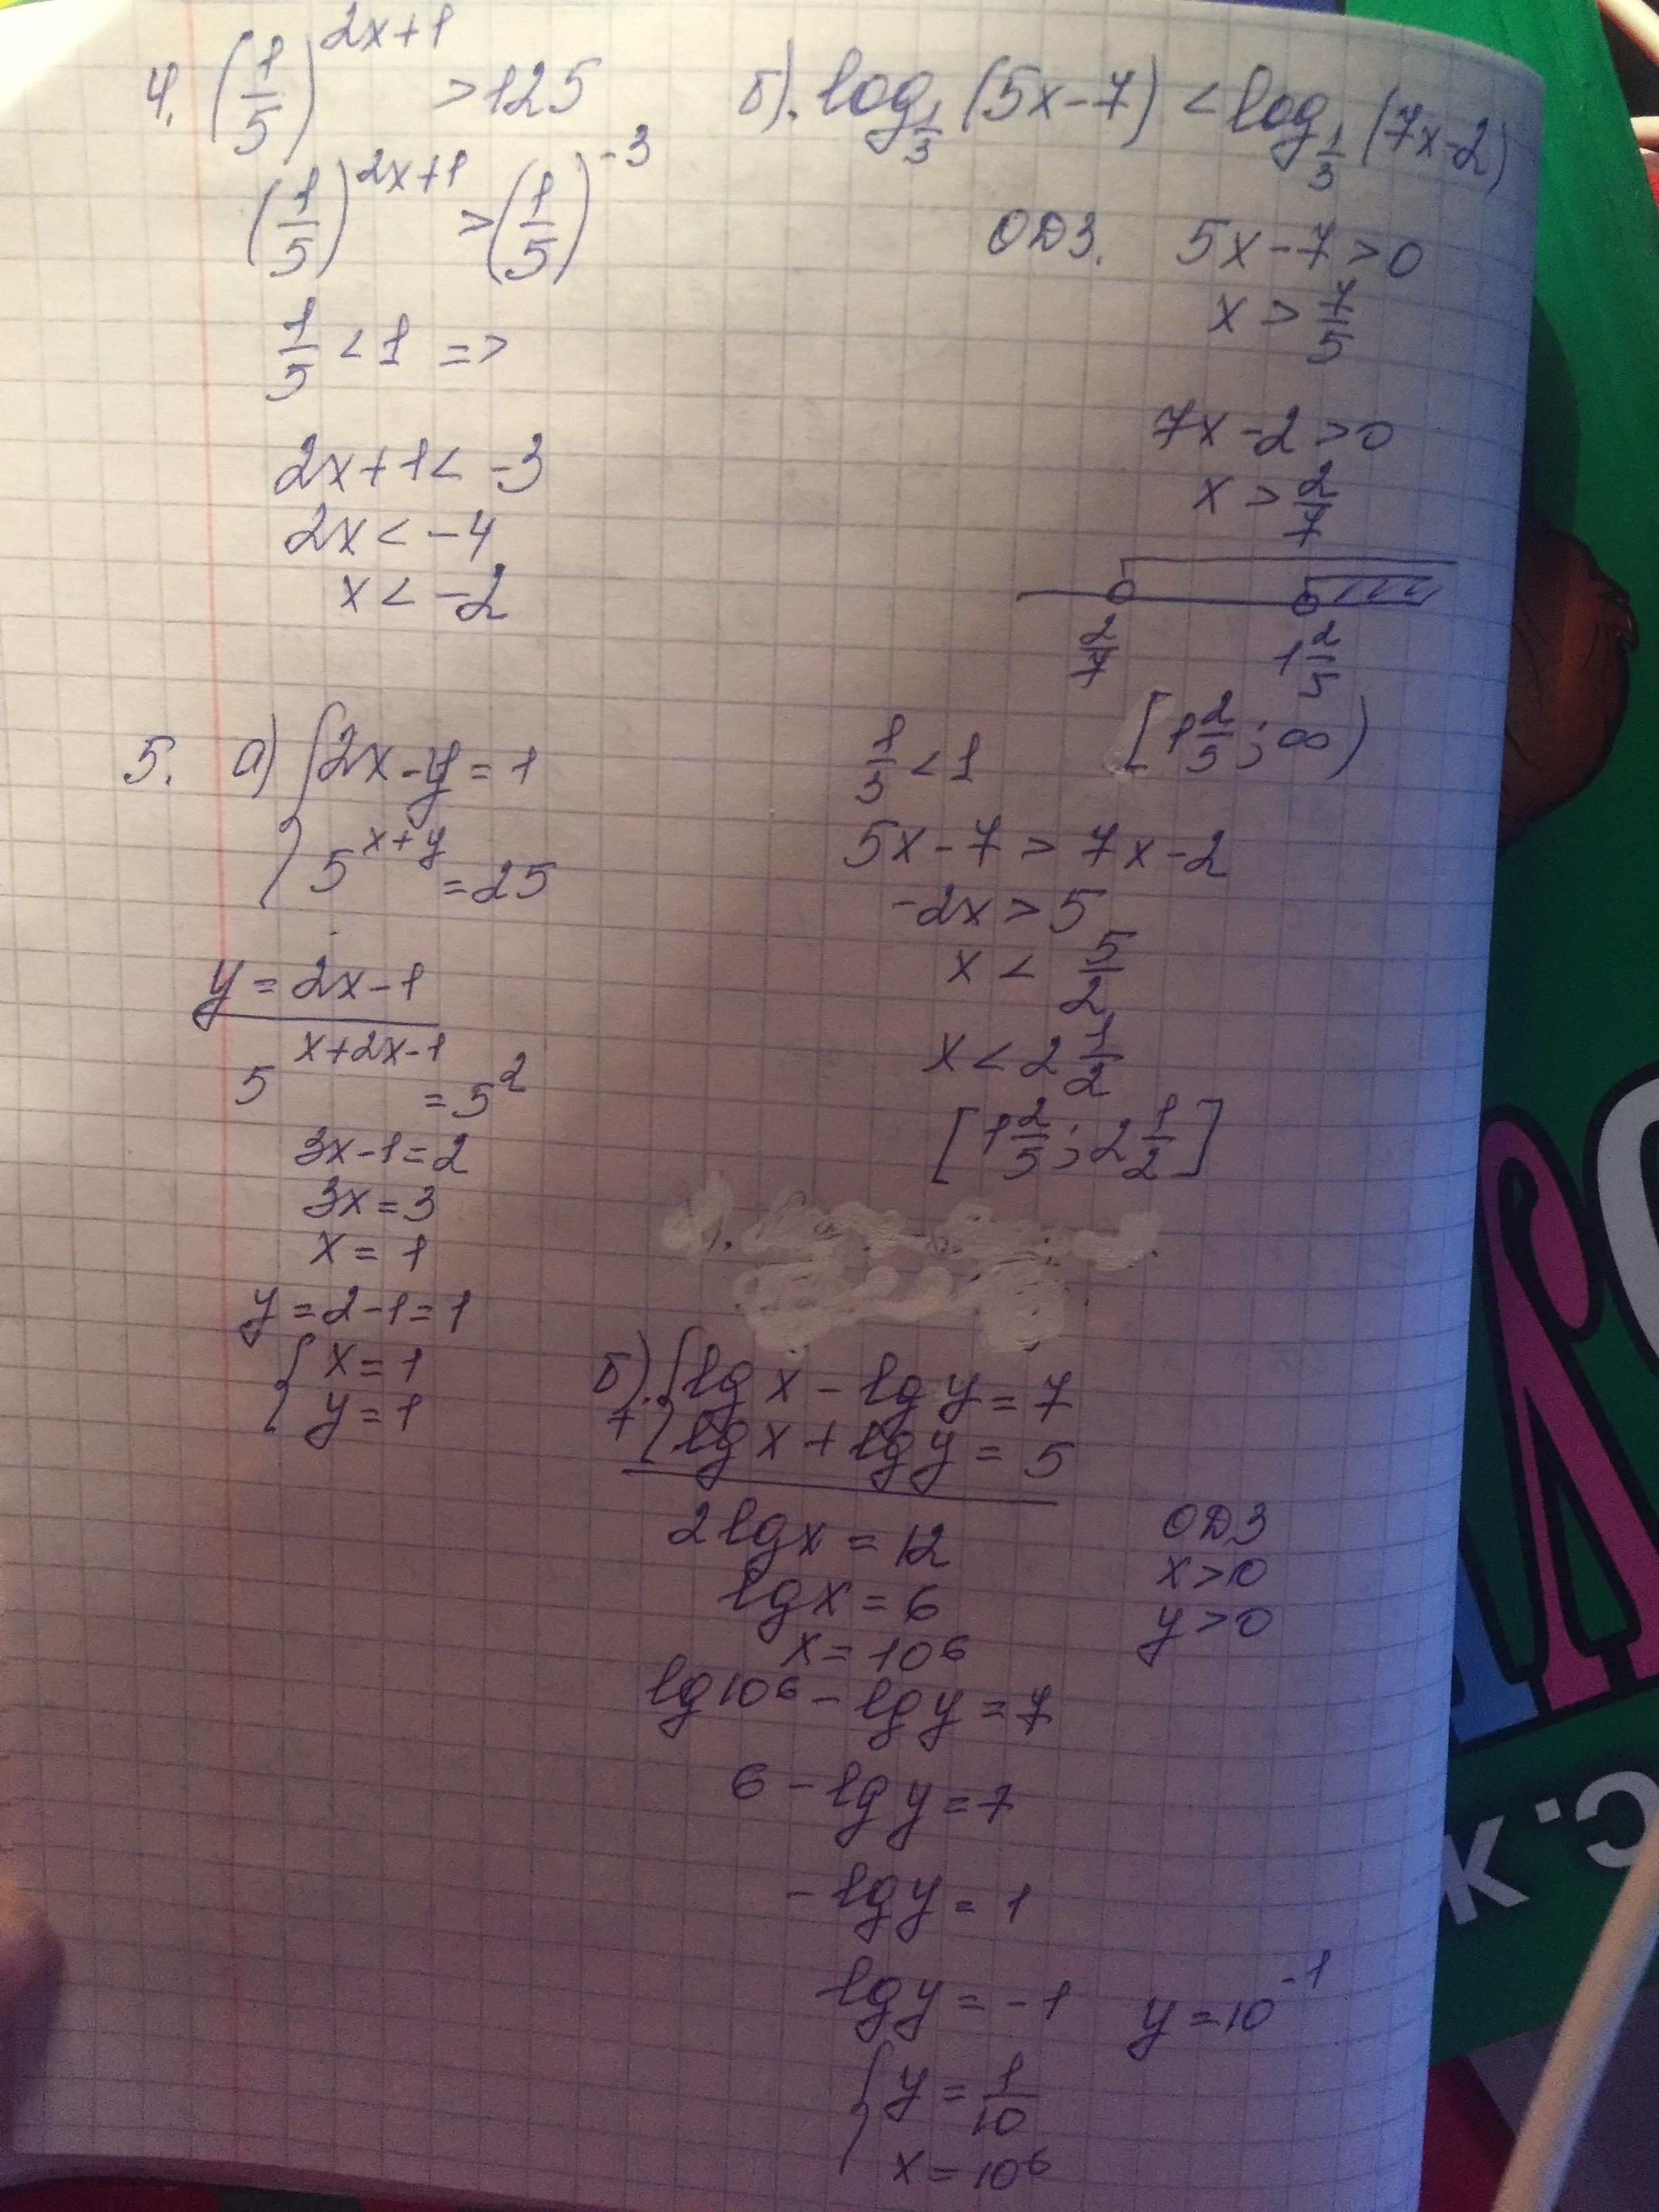 4. (1/5)^(2x+1) > 125
(1/5)^(2x+1) > (1/5)^(-3)
1/5 < 1 =>
2x+1 < -3
2x < -4
x < -2
б). log_(1/3) (5x-7) < log_(1/3) (7x-2)
ОДЗ. 5x-7>0
x > 7/5
7x-2>0
x > 2/7
2/7 1 2/5
[1 2/5; ∞)
1/3 < 1
5x-7 > 7x-2
-2x > 5
x < 5/2
x < 2 1/2
[1 2/5; 2 1/2]
5. а) { 2x-y=1
5^(x+y) = 25
y = 2x-1
5^(x+2x-1) = 5^2
3x-1=2
3x=3
x=1
y=2-1=1
{ x=1
y=1
б). { lg x - lg y = 7
+ lg x + lg y = 5
2lg x = 12
lg x = 6
x = 10^6
ОДЗ
x>0
y>0
lg 10^6 - lg y = 7
6 - lg y = 7
- lg y = 1
lg y = -1 y = 10^(-1)
{ y = 1/10
x = 10^6
С.М